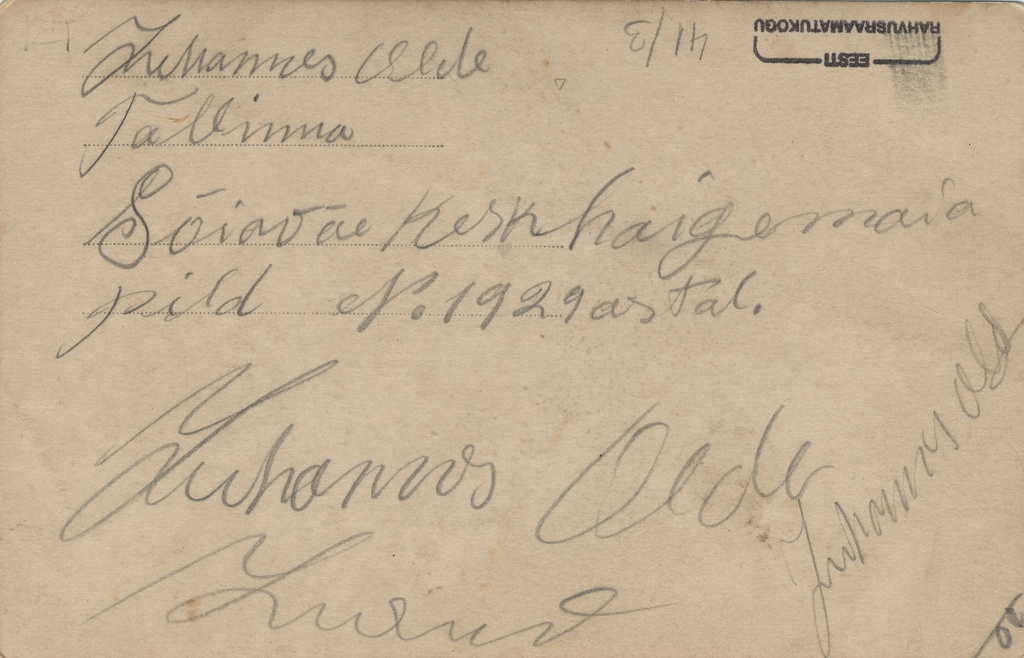 Juhannes Olde
Tallinna
Sõiaväe kesk haigemaia
pild N. 1929 astal.
Juhannes Olde
Juhannes old
41/3
EESTI
RAHVUSRAAMATUKOGU